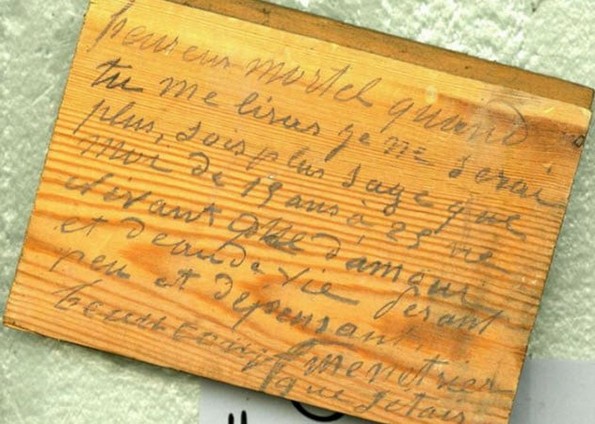 heureux mortel quand
tu me liras je ne serai
plus, sois plus sage que
moi de 19 ans à 25 ne
vivant que d'amour
et deau de vie
peu et depensant
beaucoup menetrier
que jetais